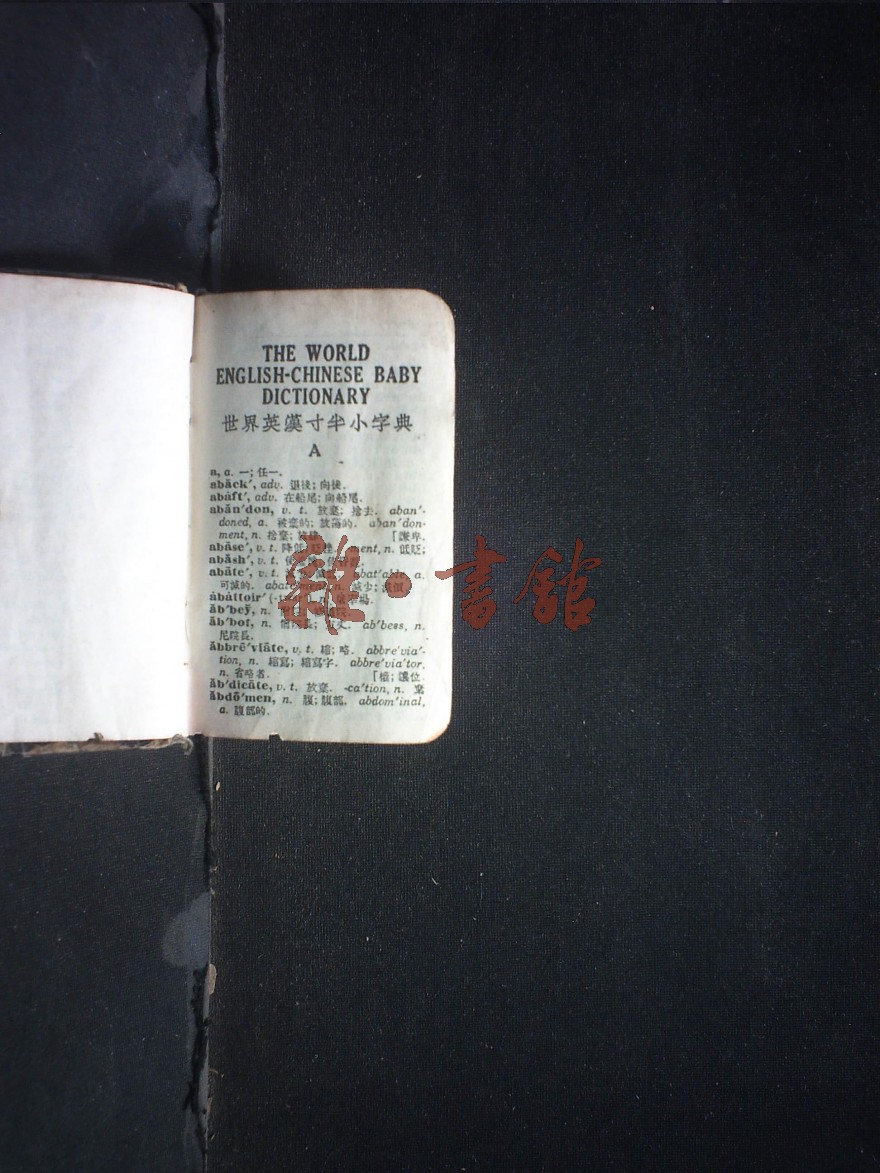 THE WORLD
ENGLISH-CHINESE BABY
DICTIONARY
世界英漢寸半小字典
A
a, a. 一; 任一.
abăck′, adv. 退後; 向後.
abȧft′, adv. 在船尾; 向船尾.
abăn′don, v. t. 放棄; 捨去. aban′-
doned, a. 被棄的; 放蕩的. aban′don-
ment, n. 捨棄; 「謙卑.
abāse′, v. t. 降低; ment, n. 低貶;
abăsh′, v. t.
abāte′, v. t. abat′able, a.
可減的. abate′ment, n. 減少; 減價.
ăb′bey̆, n.
ăb′bot, n. ab′bess, n.
尼院長.
ăbbrē′vĭāte, v. t. 縮; 略. abbre′via′-
tion, n. 縮寫; 縮寫字. abbre′via′tor,
n. 省略者. 「權; 讓位.
ăb′dicāte, v. t. 放棄. -ca′tion, n. 棄
ăbdō′men, n. 腹; 腹部. abdom′inal,
a. 腹部的.
雜·書館